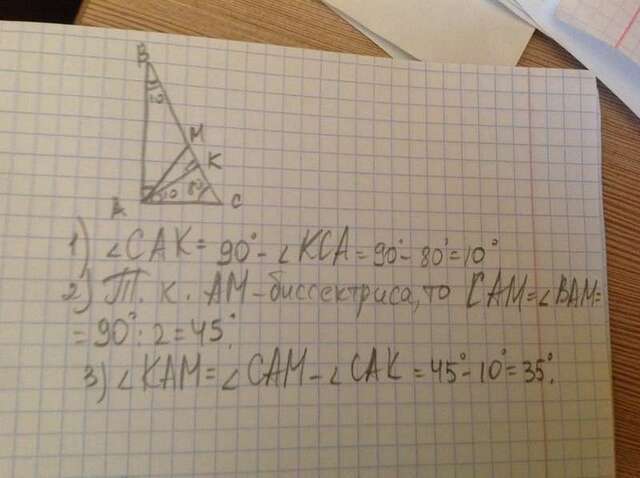 B
10
M
K
A
10
80°
C
1) ∠CAK = 90° - ∠KCA = 90° - 80° = 10°
2) Т. к. AM - биссектриса, то ∠CAM = ∠BAM =
= 90° : 2 = 45°
3) ∠KAM = ∠CAM - ∠CAK = 45° - 10° = 35°.